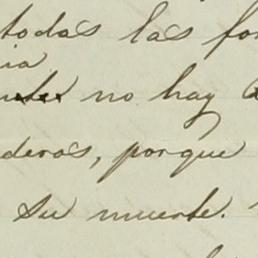 todas las fo
ia
no hay
deros, porque
su muerte.